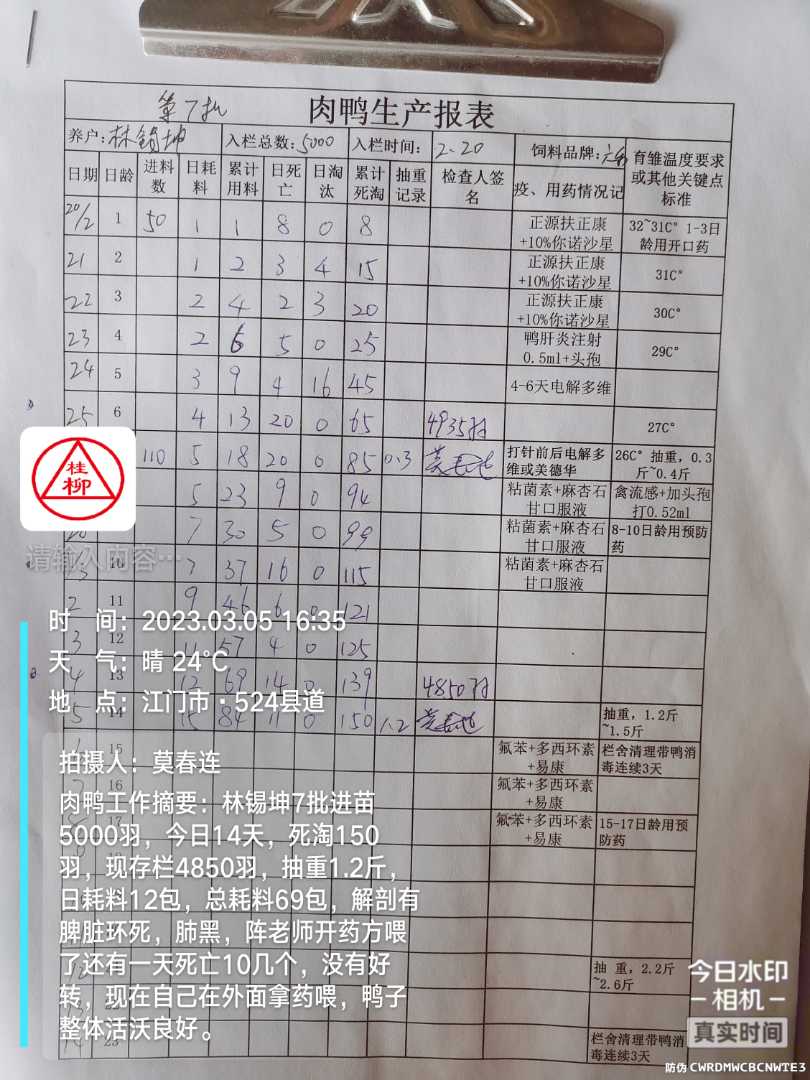 第7批
肉鸭生产报表
养户:林锡坤 入栏总数:5000 入栏时间: 2.20 饲料品牌:
日期 日龄 进料数 日耗料 累计用料 日死亡 日淘汰 累计死淘 抽重记录 检查人签名 疫、用药情况记 育雏温度要求或其他关键点标准
20/2 1 50 1 1 8 0 8 正源扶正康+10%你诺沙星 32~31C° 1-3日龄用开口药
21 2 1 2 3 4 15 正源扶正康+10%你诺沙星 31C°
22 3 2 4 2 3 20 正源扶正康+10%你诺沙星 30C°
23 4 2 6 5 0 25 鸭肝炎注射0.5ml+头孢 29C°
24 5 3 9 4 16 45 4-6天电解多维
25 6 4 13 20 0 65 4935羽 27C°
110 5 18 20 0 85 0.3 打针前后电解多维或美德华 26C° 抽重，0.3斤~0.4斤
5 23 9 0 94 粘菌素+麻杏石甘口服液 禽流感+加头孢打0.52ml
7 30 5 0 99 粘菌素+麻杏石甘口服液 8-10日龄用预防药
10 7 37 16 0 115 粘菌素+麻杏石甘口服液
2 11 9 46 6 0 121
3 12 11 57 4 0 125
4 13 12 69 14 0 139 4850羽
5 14 15 84 11 0 150 1.2 抽重，1.2斤~1.5斤
15 氟苯+多西环素+易康 栏舍清理带鸭消毒连续3天
16 氟苯+多西环素+易康
17 氟苯+多西环素+易康 15-17日龄用预防药
抽 重，2.2斤~2.6斤
栏舍清理带鸭消毒连续3天
桂柳
请输入内容…
时 间：2023.03.05 16:35
天 气：晴 24℃
地 点：江门市·524县道
拍摄人：莫春连
肉鸭工作摘要：林锡坤7批进苗
5000羽，今日14天，死淘150
羽，现存栏4850羽，抽重1.2斤，
日耗料12包，总耗料69包，解剖有
脾脏环死，肺黑，阵老师开药方喂
了还有一天死亡10几个，没有好
转，现在自己在外面拿药喂，鸭子
整体活沃良好。
今日水印
相机
真实时间
防伪 CWRDMWCBCNWTE3